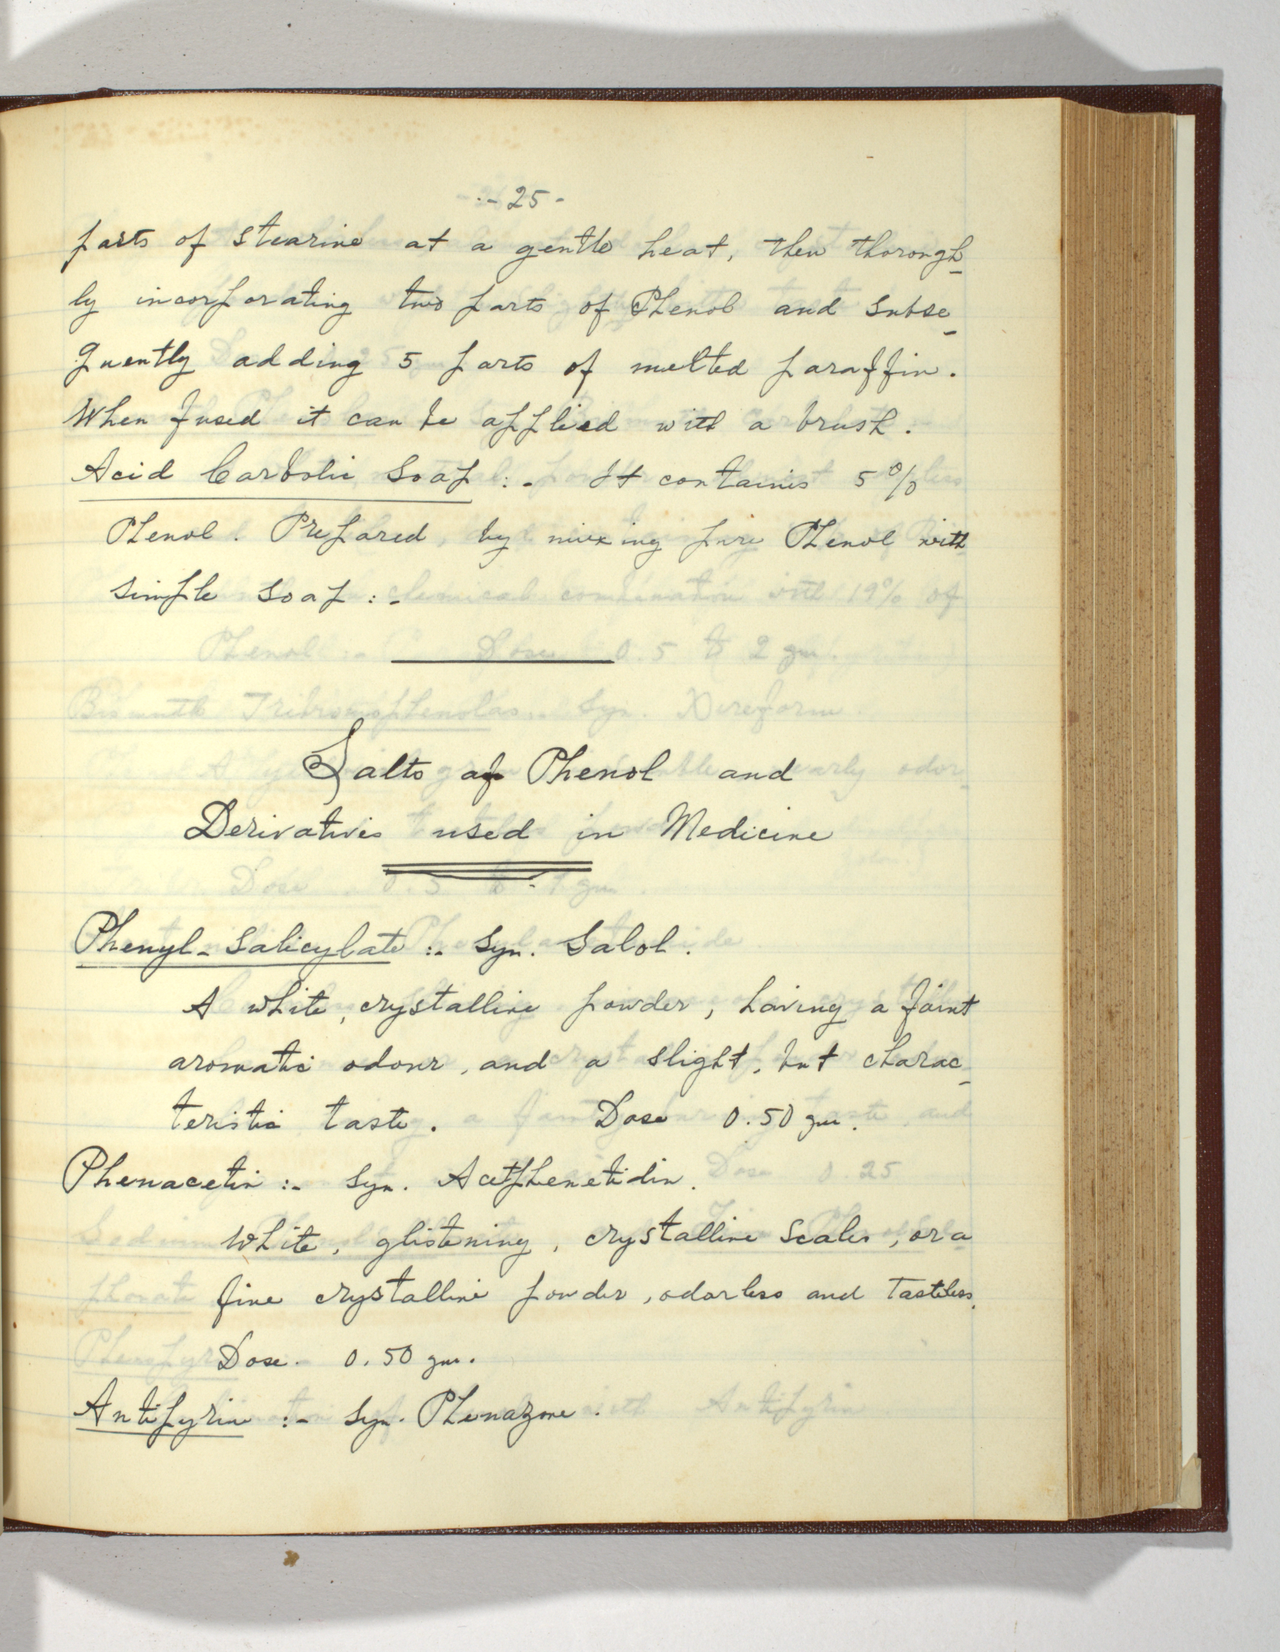 - 25 -
parts of stearine at a gentle heat, then thorough-
ly incorporating two parts of Phenol and subse-
quently adding 5 parts of melted paraffin.
When fused it can be applied with a brush.
Acid Carbolic Soap :- It contains 5 %
Phenol. Prepared, by mixing pure Phenol with
simple soap :-
Salts of Phenol and
Derivatives used in Medicine
Phenyl-Salicylate :- Syn. Salol.
A white, crystalline powder, having a faint
aromatic odour, and a slight, but charac-
teristic taste. Dose 0.50 gm.
Phenacetin :- Syn. Acetphenetidin.
White, glistening, crystalline scales, or a
fine crystalline powder, odorless and tasteless.
Dose. 0.50 gm.
Antipyrin :- Syn. Phenazone.